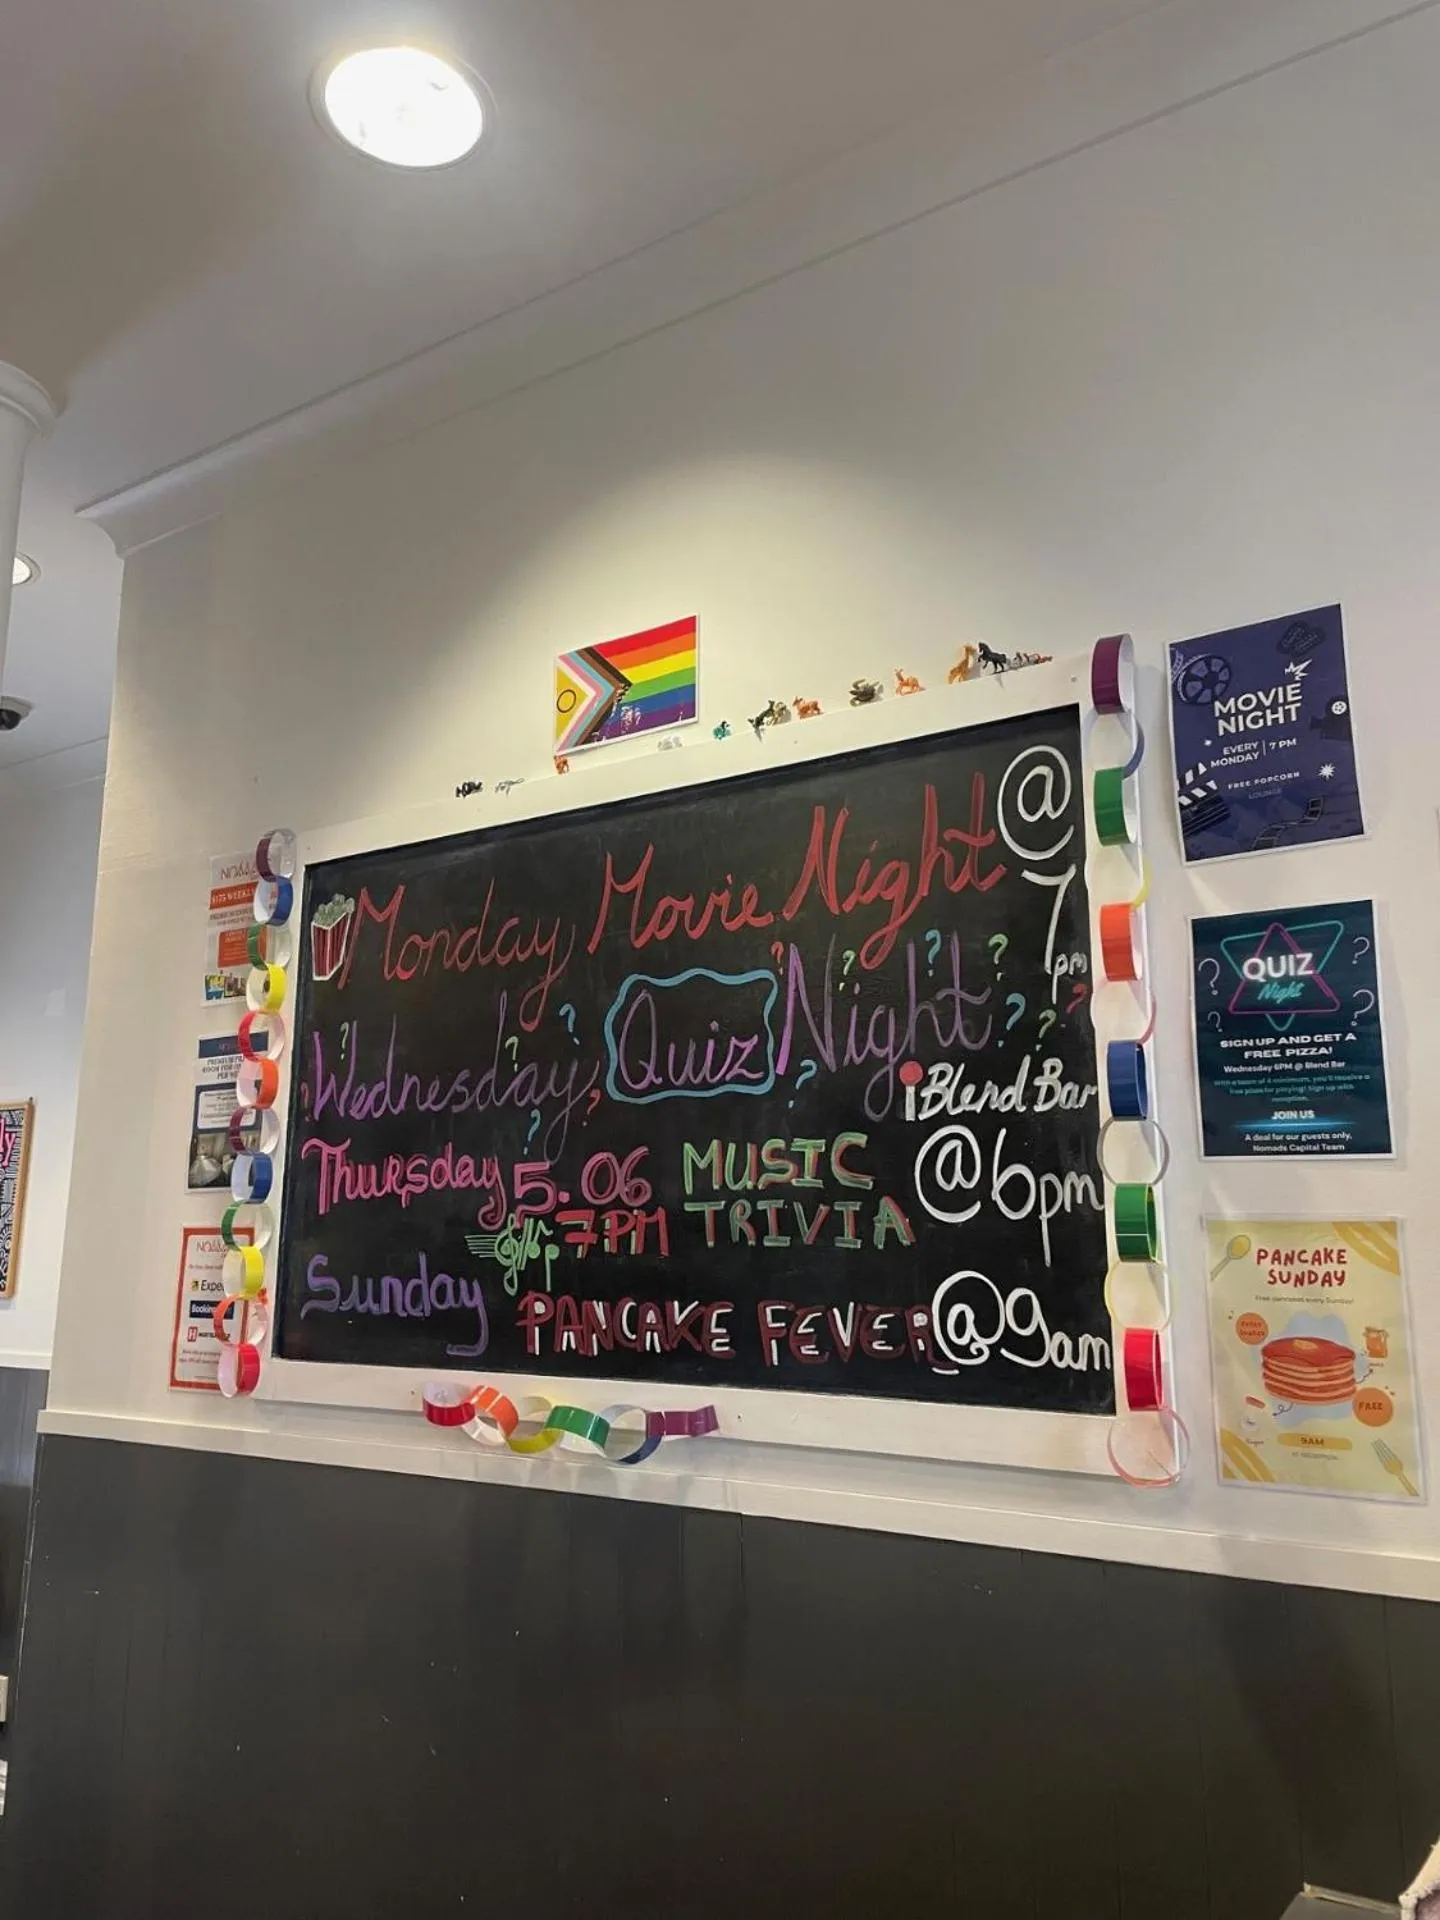 Monday Movie Night @
7pm
Wednesday Quiz Night
Blend Bar
@6pm
Thursday 5.06 MUSIC
7PM TRIVIA
Sunday PANCAKE FEVER @9am
MOVIE
NIGHT
EVERY
MONDAY
7 PM
FREE POPCORN
LOUNGE
QUIZ
Night
SIGN UP AND GET A
FREE PIZZA!
Wednesday 6PM @ Blend Bar
With a team of 4 minimum, you'll receive a
free pizza for playing! Sign up with
reception.
JOIN US
A deal for our guests only,
Nomads Capital Team
PANCAKE
SUNDAY
Free pancakes every Sunday!
FREE
9AM
AT RECEPTION
$175 WEEKLY
PREMIUM
ROOM FOR
Expe
Booking
H